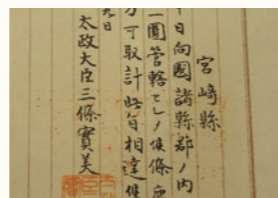 宮崎縣
日向國諸縣郡ノ内
一圓管轄
可取計此旨相達候
太政大臣三條實美